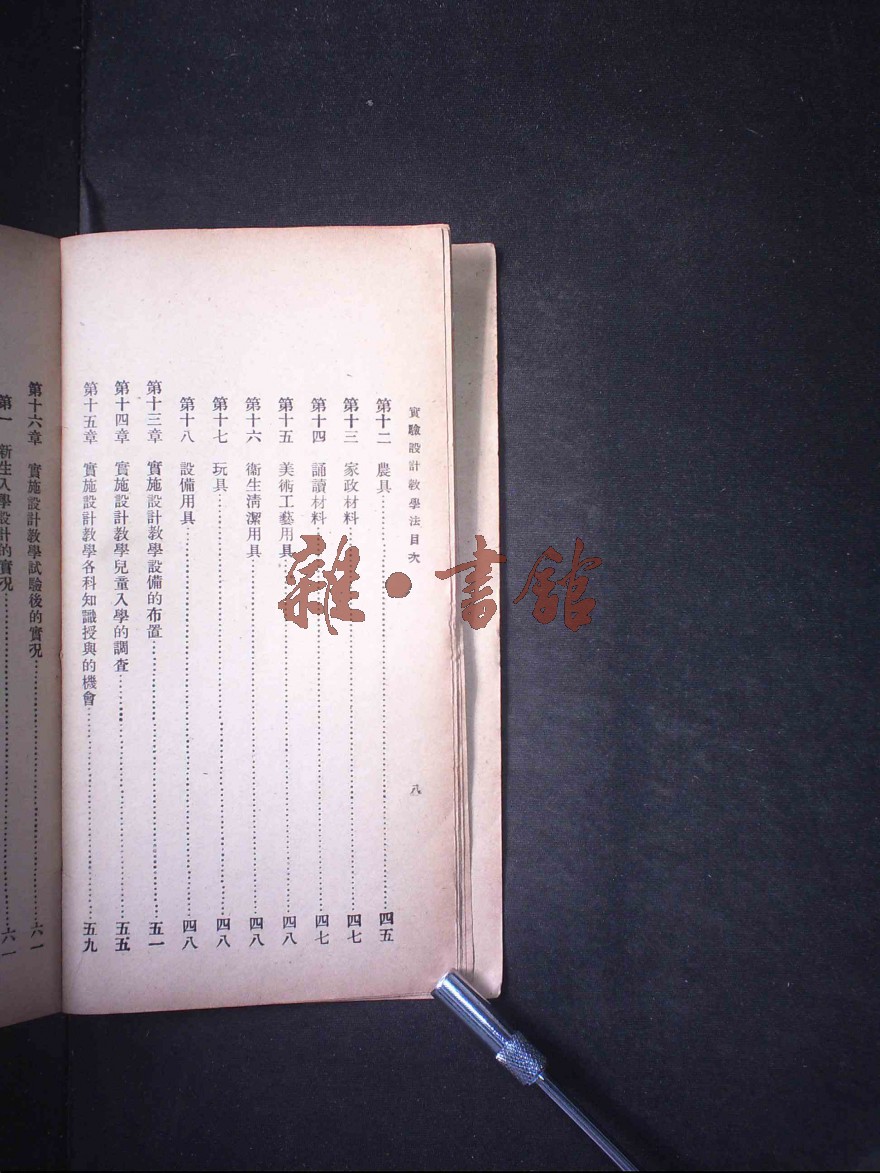 實驗設計教學法目次
八
第十二 農具 四五
第十三 家政材料 四七
第十四 誦讀材料 四七
第十五 美術工藝用具 四八
第十六 衞生清潔用具 四八
第十七 玩具 四八
第十八 設備用具 四八
第十三章 實施設計教學設備的布置 五一
第十四章 實施設計教學兒童入學的調查 五五
第十五章 實施設計教學各科知識授與的機會 五九
第十六章 實施設計教學試驗後的實況 六一
第一 新生入學設計的實况 六一
雜・書館